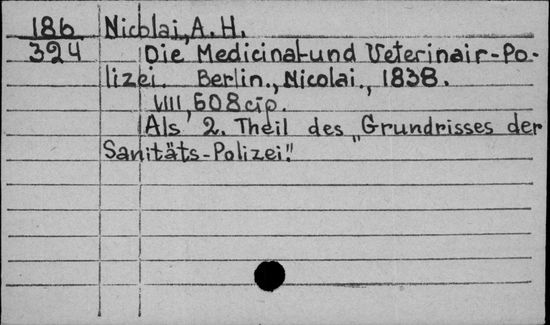 186 Nicolai, A. H.
324 Die Medicinal-und Veterinair-Po-
lizei. Berlin., Nicolai., 1838.
VIII, 608 cтр.
Als 2. Theil des „Grundrisses der
Sanitäts-Polizei."